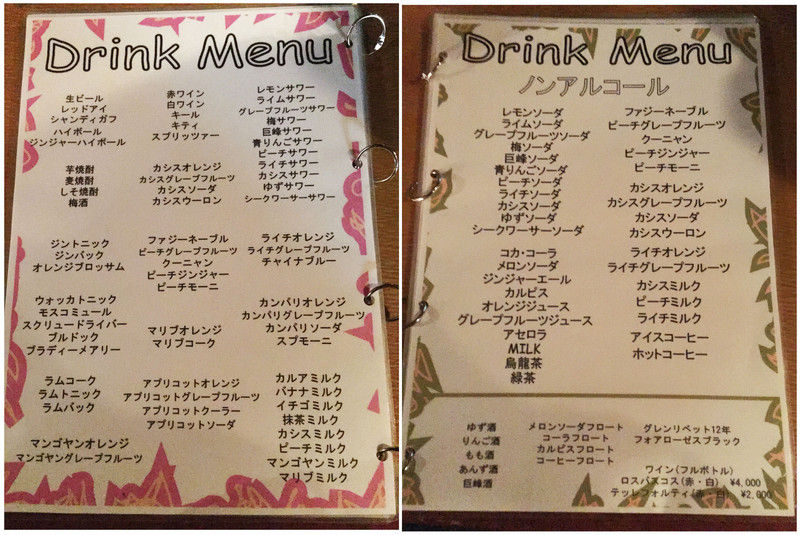 Drink Menu
生ビール
レッドアイ
シャンディガフ
ハイボール
ジンジャーハイボール
赤ワイン
白ワイン
キール
キティ
スプリッツァー
レモンサワー
ライムサワー
グレープフルーツサワー
梅サワー
巨峰サワー
青りんごサワー
ピーチサワー
ライチサワー
カシスサワー
ゆずサワー
シークワーサーサワー
芋焼酎
麦焼酎
しそ焼酎
梅酒
カシスオレンジ
カシスグレープフルーツ
カシスソーダ
カシスウーロン
ジントニック
ジンバック
オレンジブロッサム
ファジーネーブル
ピーチグレープフルーツ
クーニャン
ピーチジンジャー
ピーチモーニ
ライチオレンジ
ライチグレープフルーツ
チャイナブルー
ウォッカトニック
モスコミュール
スクリュードライバー
ブルドック
ブラディーメアリー
マリブオレンジ
マリブコーク
カンパリオレンジ
カンパリグレープフルーツ
カンパリソーダ
スプモーニ
ラムコーク
ラムトニック
ラムバック
アプリコットオレンジ
アプリコットグレープフルーツ
アプリコットクーラー
アプリコットソーダ
カルアミルク
バナナミルク
イチゴミルク
抹茶ミルク
カシスミルク
ピーチミルク
マンゴヤンミルク
マリブミルク
マンゴヤンオレンジ
マンゴヤングレープフルーツ
Drink Menu
ノンアルコール
レモンソーダ
ライムソーダ
グレープフルーツソーダ
梅ソーダ
巨峰ソーダ
青りんごソーダ
ピーチソーダ
ライチソーダ
カシスソーダ
ゆずソーダ
シークワーサーソーダ
ファジーネーブル
ピーチグレープフルーツ
クーニャン
ピーチジンジャー
ピーチモーニ
カシスオレンジ
カシスグレープフルーツ
カシスソーダ
カシスウーロン
コカ・コーラ
メロンソーダ
ジンジャーエール
カルピス
オレンジジュース
グレープフルーツジュース
アセロラ
MILK
烏龍茶
緑茶
ライチオレンジ
ライチグレープフルーツ
カシスミルク
ピーチミルク
ライチミルク
アイスコーヒー
ホットコーヒー
ゆず酒
りんご酒
もも酒
あんず酒
巨峰酒
メロンソーダフロート
コーラフロート
カルピスフロート
コーヒーフロート
グレンリベット12年
フォアローゼスブラック
ワイン(フルボトル)
ロスバスコス(赤・白) ¥4,000
テッレフォルティ(赤・白) ¥2,000